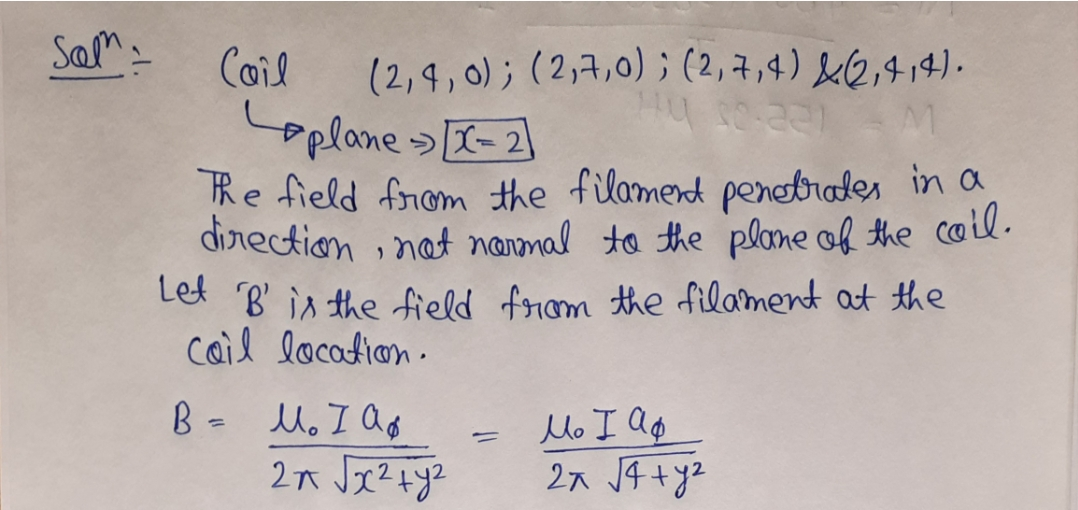 Solⁿ :-
Coil (2,4,0) ; (2,7,0) ; (2,7,4) & (2,4,4).
↳ plane ⇒ x = 2
The field from the filament penetrates in a
direction, not normal to the plane of the coil.
Let 'B' is the field from the filament at the
coil location.
B = μ₀ I aϕ / 2π √x²+y² = μ₀ I aϕ / 2π √4+y²